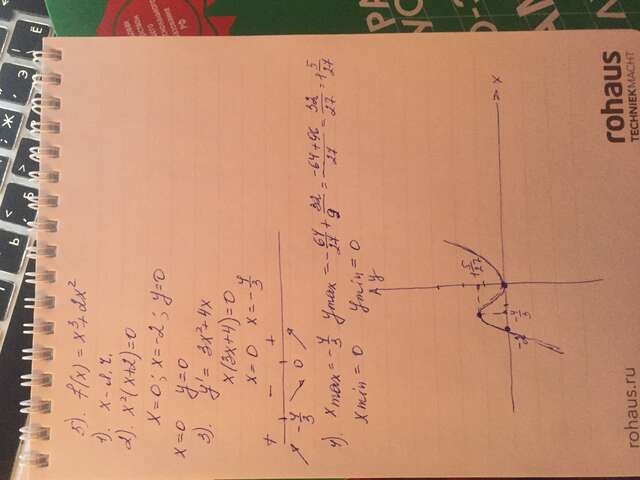 5). f(x) = x³ + 2x²
1). x - л.ч.
2). x²(x+2)=0
x=0; x=-2; y=0
x=0 y=0
3). y' = 3x²+4x
x(3x+4)=0
x=0 x=-4/3
+ - +
-4/3 0
4). xmax=-4/3 ymax=-64/27+32/9=(-64+96)/27=32/27=1 5/27
xmin=0 ymin=0
y
1 5/27
x
-2 -4/3
rohaus.ru
rohaus
TECHNIEKMACHT
РФ